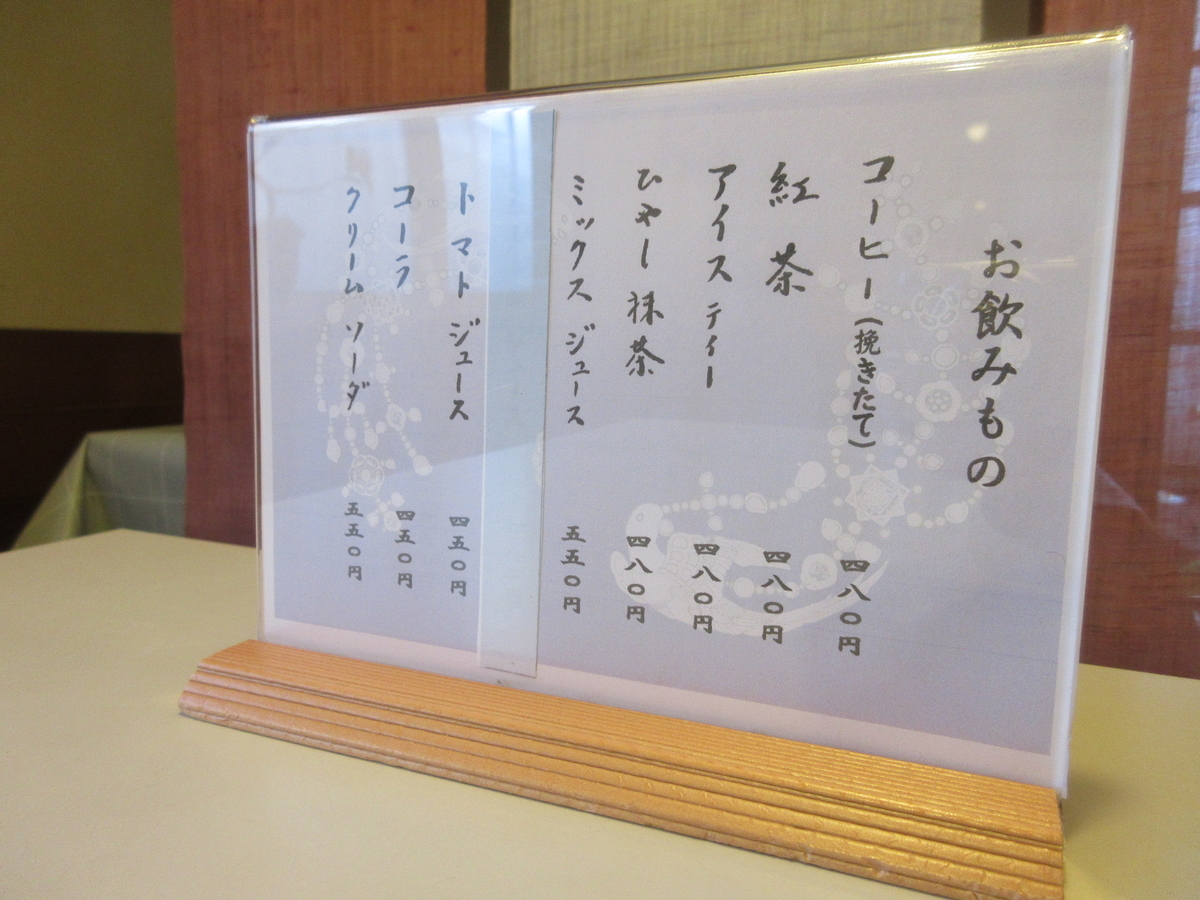 お飲みもの
コーヒー(挽きたて) 四八〇円
紅茶 四八〇円
アイスティー 四八〇円
ひやし抹茶 四八〇円
ミックスジュース 五五〇円
トマトジュース 四五〇円
コーラ 四五〇円
クリームソーダ 五五〇円